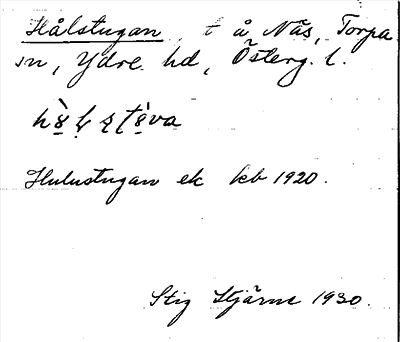 Hålstugan, t å Näs, Torpa
sn, Ydre hd, Österg. l.
Hulustugan ek kb 1920.
Stig Stjärne 1930.